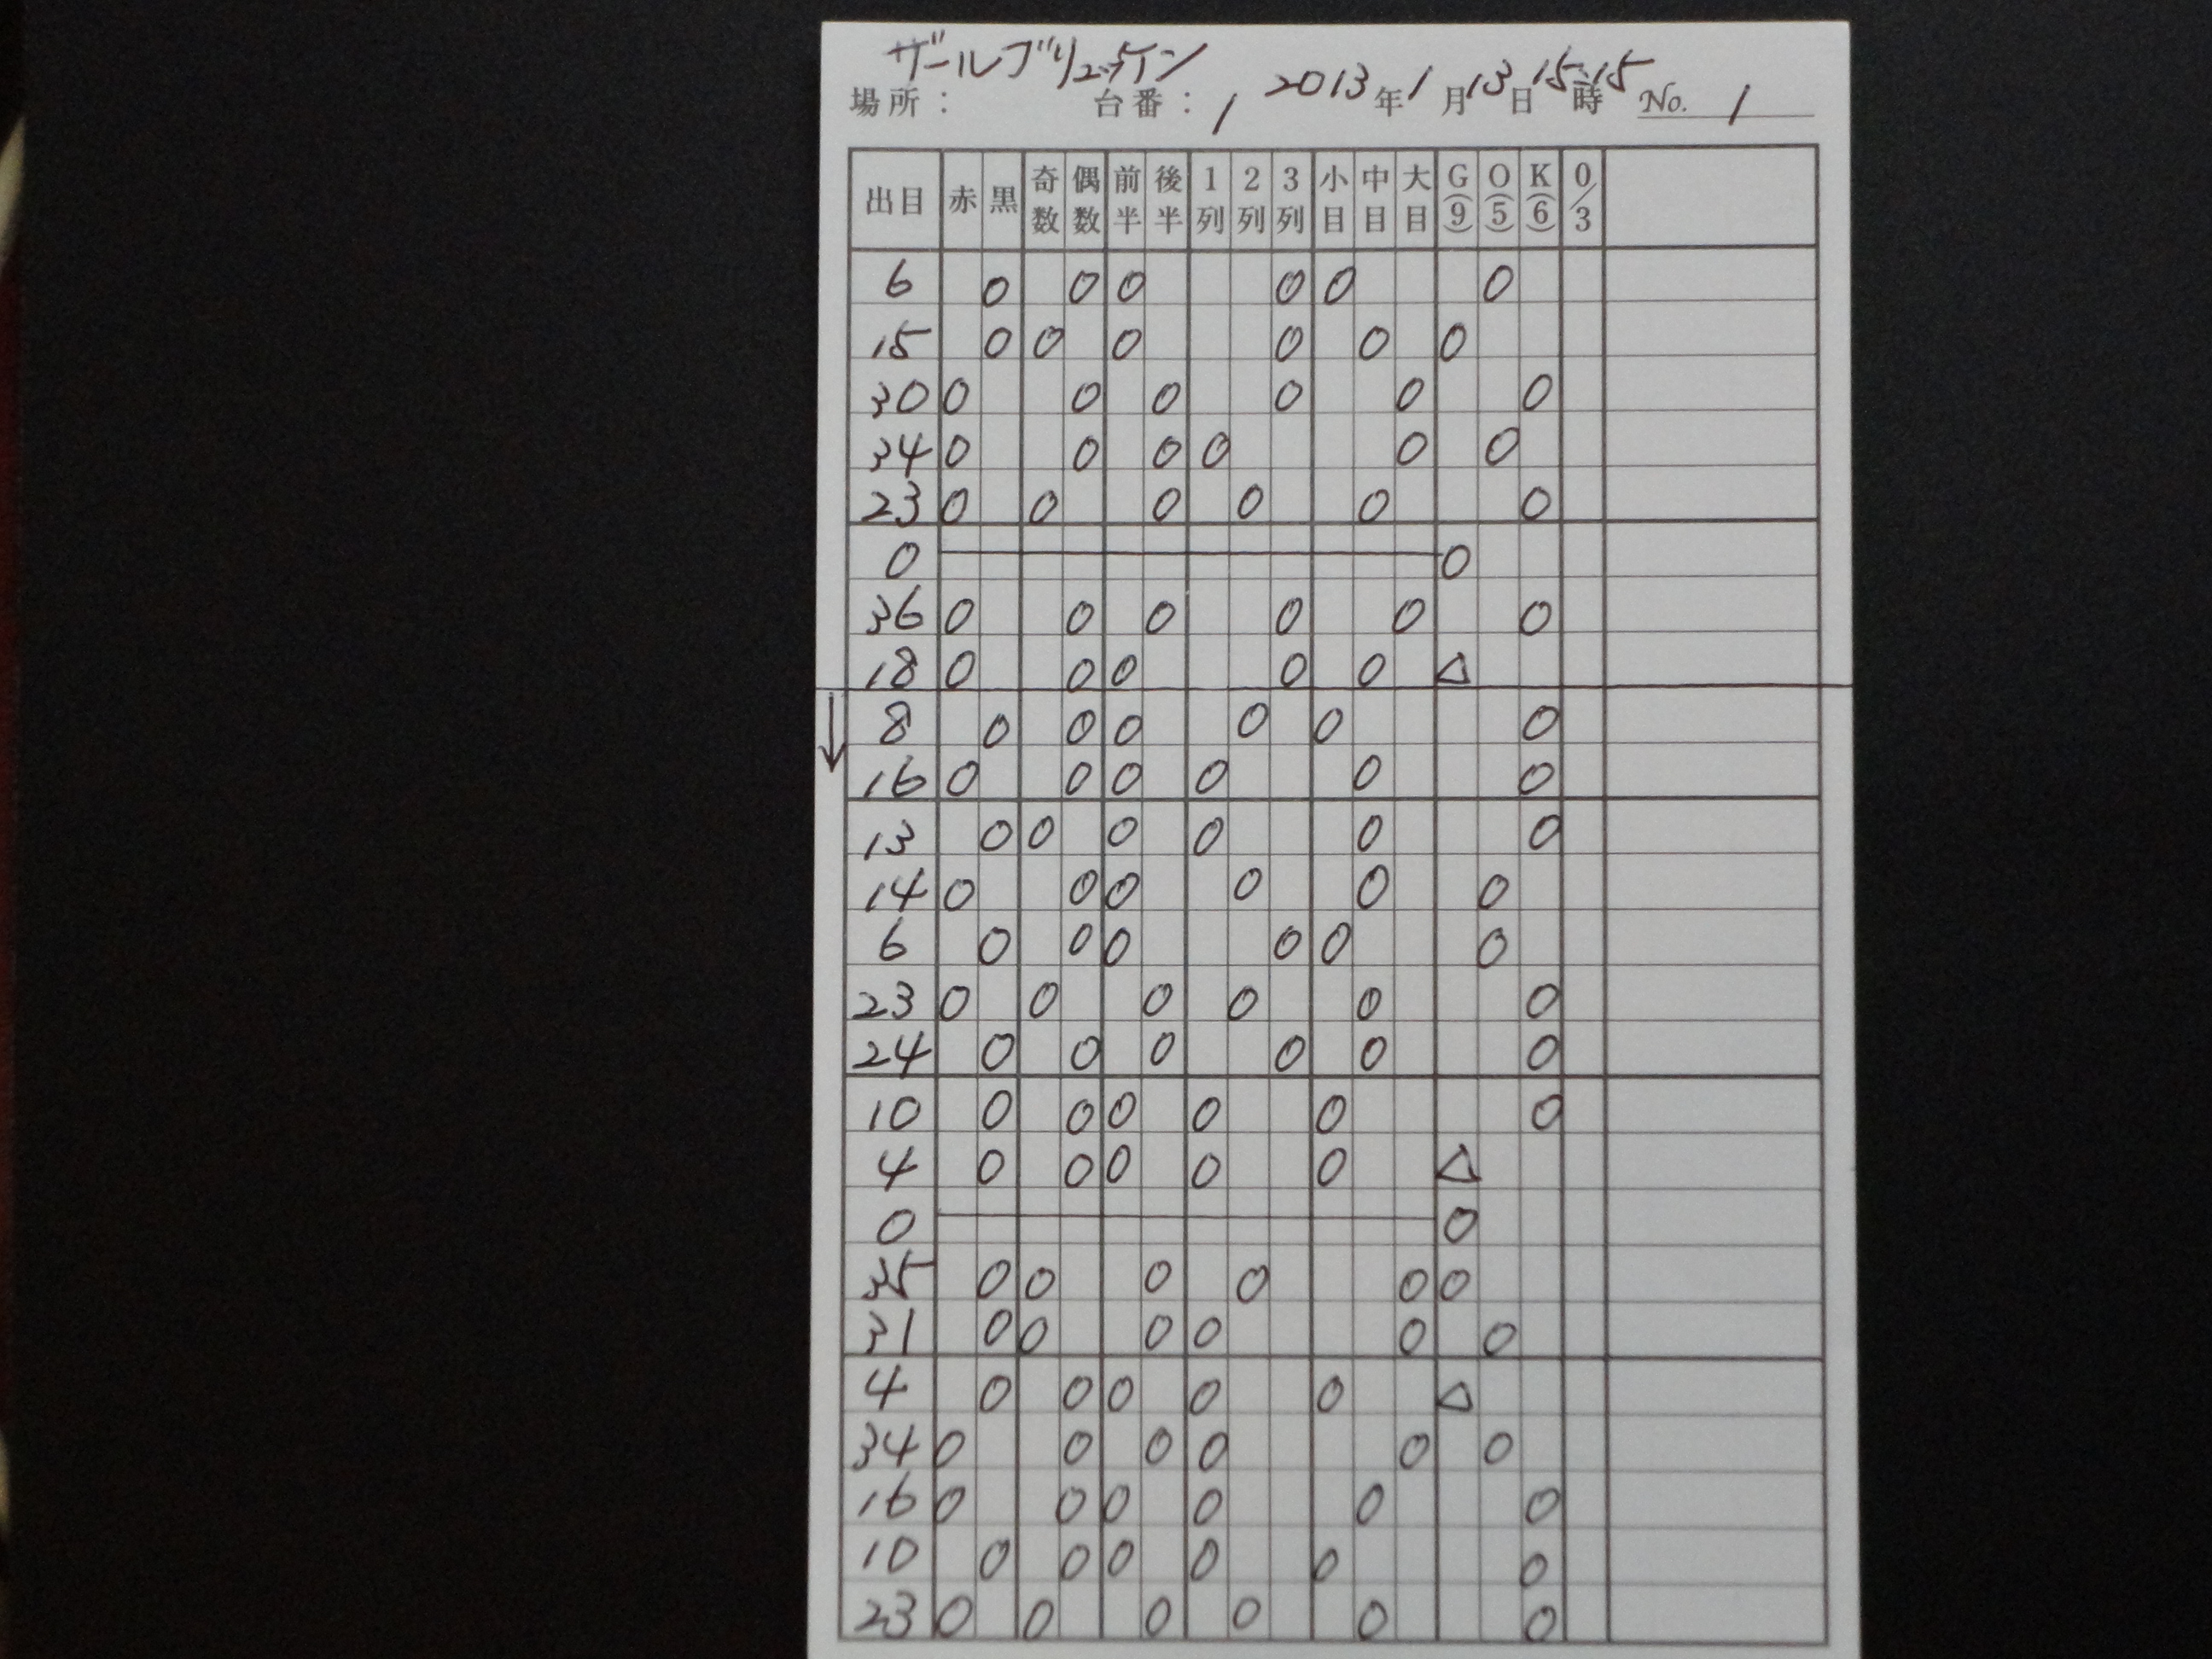 ザールブリュッケン
場所： 台番：1 2013年1月13日15:15時 No. 1
出目 赤 黒 奇数 偶数 前半 後半 1列 2列 3列 小目 中目 大目 G(9) O(5) K(6) 0/3
6 0 0 0 0 0 0
15 0 0 0 0 0 0
30 0 0 0 0 0 0
34 0 0 0 0 0 0
23 0 0 0 0 0 0
0 0
36 0 0 0 0 0 0
18 0 0 0 0 0 △
↓ 8 0 0 0 0 0 0
16 0 0 0 0 0 0
13 0 0 0 0 0 0
14 0 0 0 0 0 0
6 0 0 0 0 0 0
23 0 0 0 0 0 0
24 0 0 0 0 0 0
10 0 0 0 0 0 0
4 0 0 0 0 0 △
0 0
35 0 0 0 0 0 0
31 0 0 0 0 0 0
4 0 0 0 0 0 △
34 0 0 0 0 0 0
16 0 0 0 0 0 0
10 0 0 0 0 0 0
23 0 0 0 0 0 0